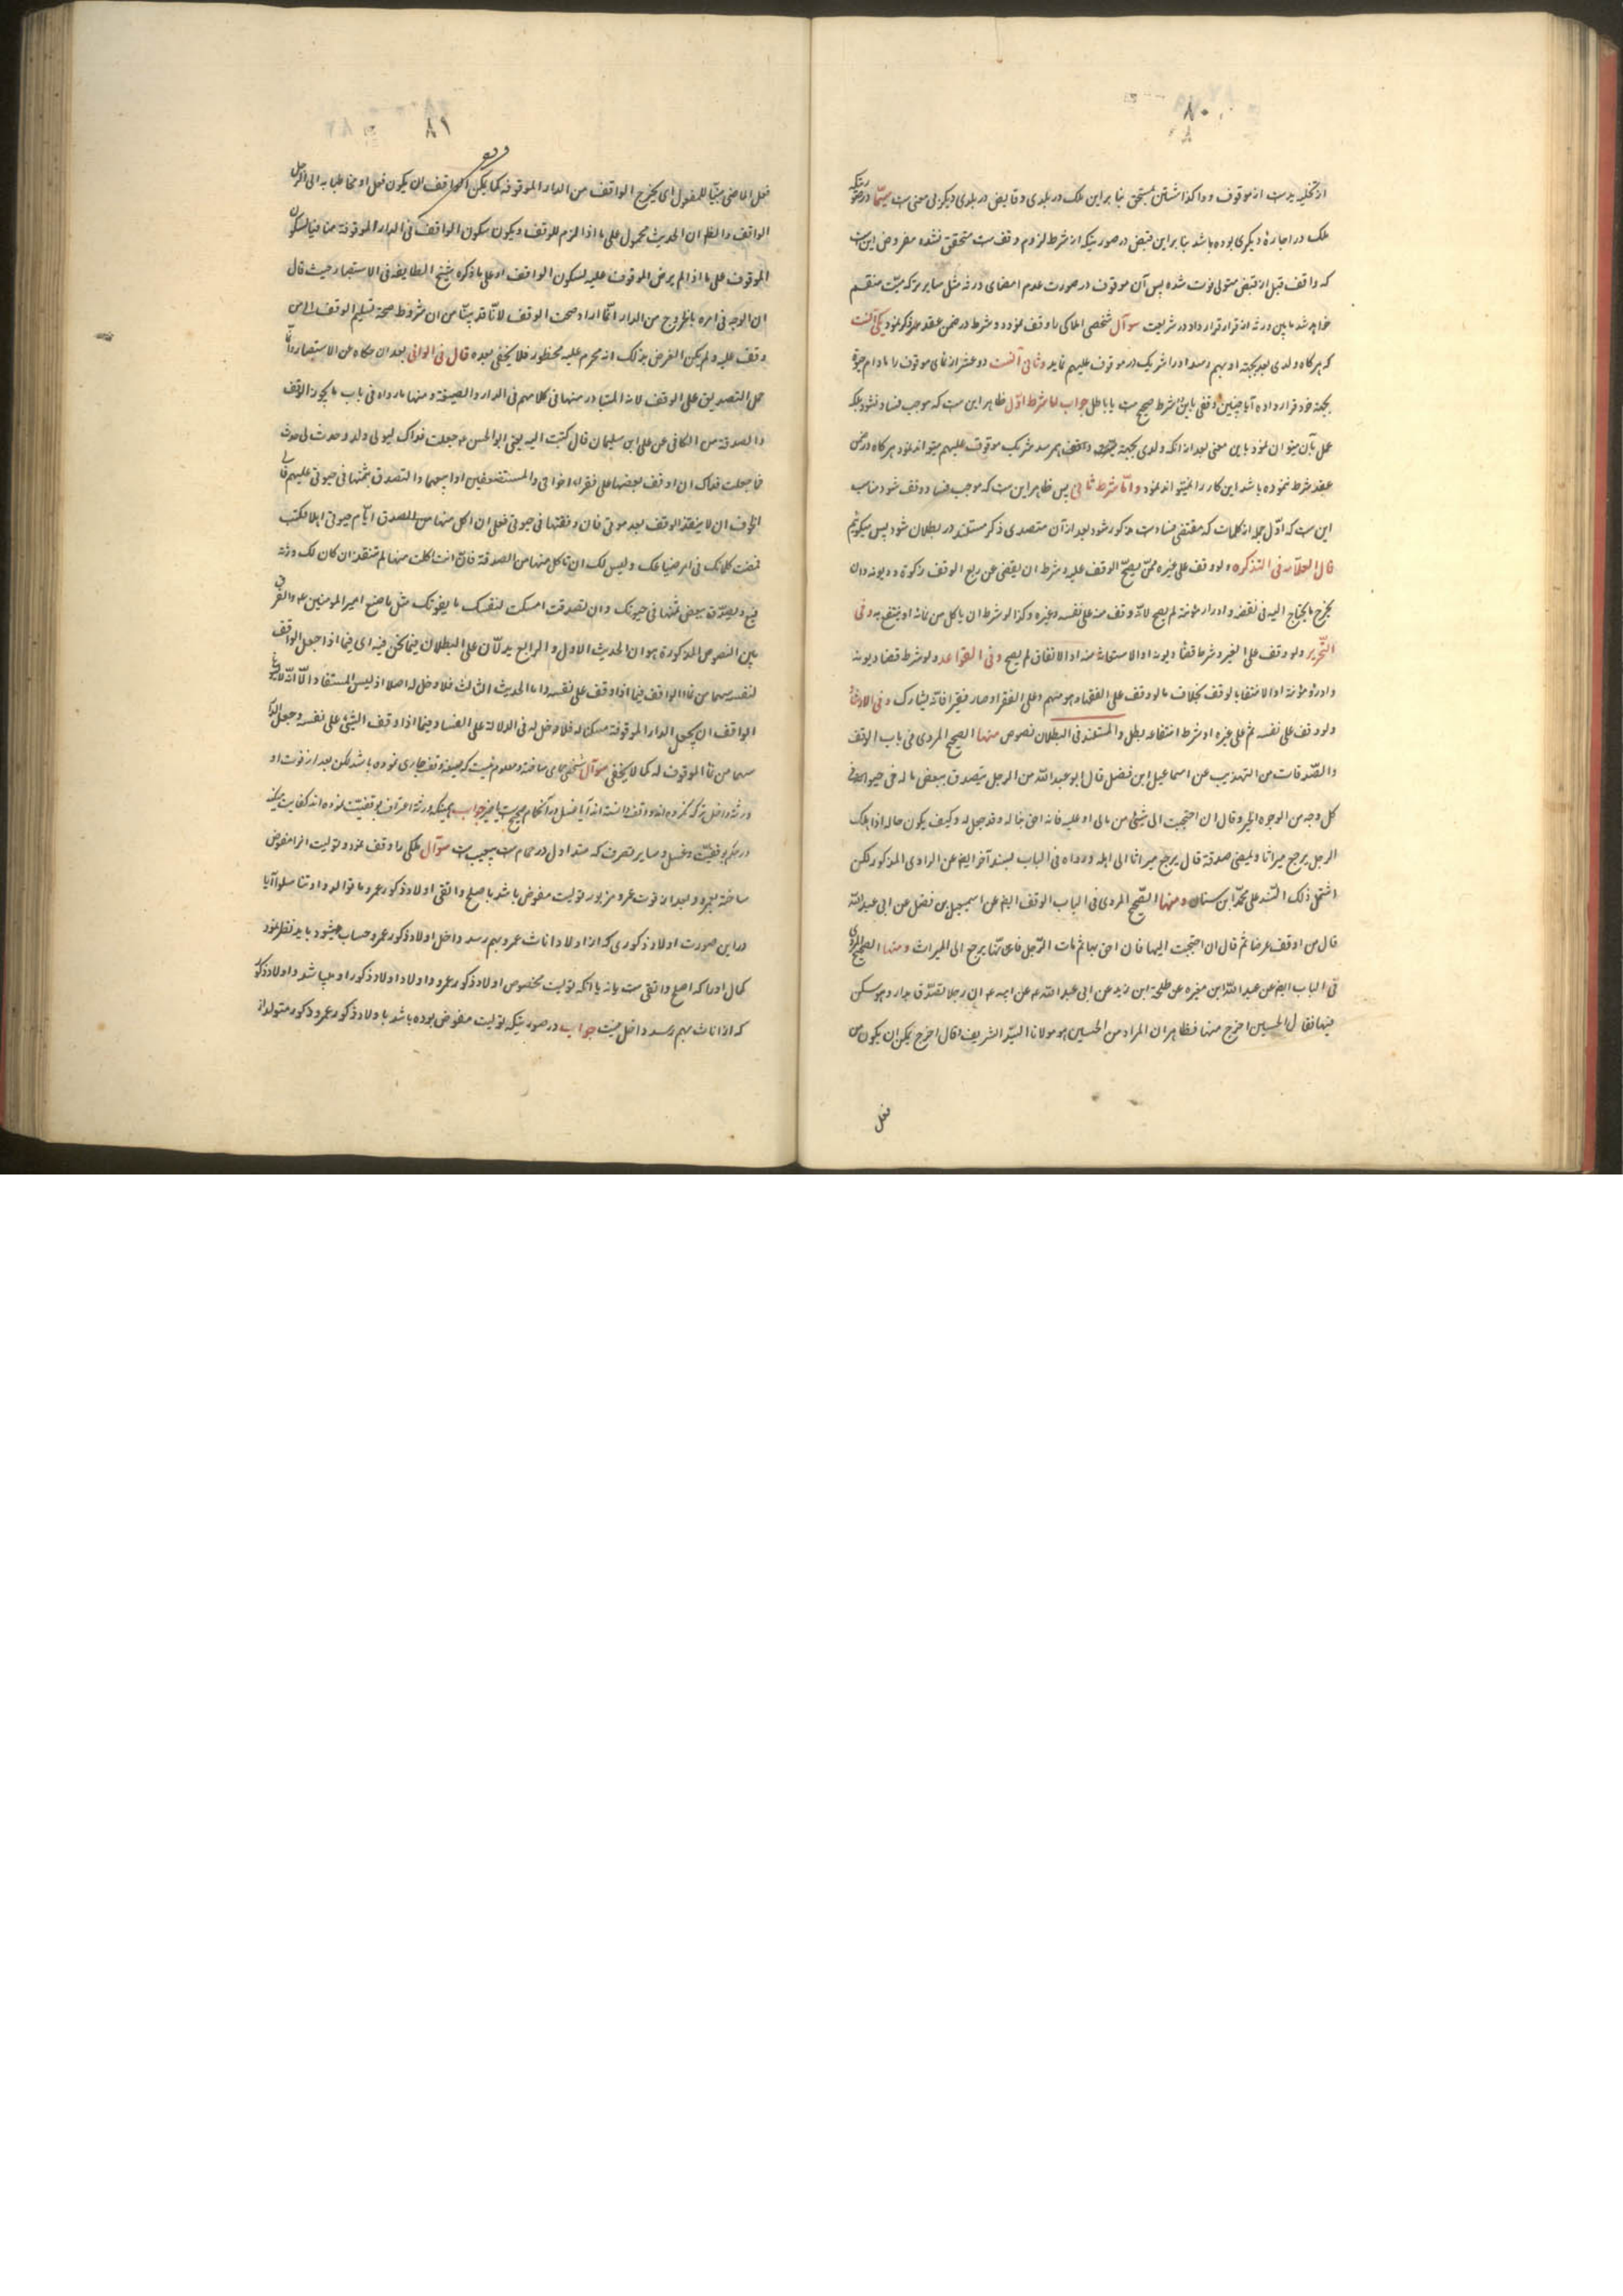 ۸۰
از تخلیه ید ست از موقوف و واگذاشتن بمستحق بنا بر این ملک در بلدی و قابض در بلدی دیگر بی معنی ست سیّما در صورتیکه
ملک در اجارهٔ دیگری بوده باشد بنا بر این قبض در صورتیکه از شرط لزوم وقف ست متحقق نشده مفروض این ست
که واقف قبل از قبض متولی فوت شده پس آن موقوف در صورت عدم امضای ورثه مثل سایر ترکه میّت منقسم
خواهد شد ما بین ورثه از قرار قرارداد در شریعت سوآل شخصی املاکی را وقف نموده و شرط در ضمن عقد مذکور نموده یکی آنست
که هرگاه ولدی بعد بجهة او بهم رسد او را شریک در موقوف علیهم نماید و ثانی آنست دو عشر از نمای موقوف را مادام حیوة
بجهة خود قرار داده آیا چنین وقفی باین شرط صحیح ست یا باطل جواب اما شرط اوّل ظاهر این ست که موجب فساد نشود بلکه
عمل بآن میتوان نمود باین معنی بعد از آنکه ولدی بجهة واقف بهم رسد شریک موقوف علیهم میتواند نمود هرگاه در ضمن
عقد شرط نموده باشد این کار را نمیتواند نمود و امّا شرط ثانی پس ظاهر این ست که موجب فساد وقف شود مناسب
این ست که اوّل جمله از کلمات که مقتضی فساد ست مذکور شود بعد از آن متصدی ذکر مستند در بطلان شود پس میگوئیم
قال العلّامه فی التذکره و لو وقف علی غیره ممّن یصحّ الوقف علیه و شرط ان یقضی عن ریع الوقف زکوة و دیونه و ان
یخرج ما یحتاج الیه فی نفقته و ادرار مؤنته لم یصح لانّه وقف منه علی نفسه و غیره و کذا لو شرط ان یاکل من ثماره او ینتفع به و فی
التّحریر و لو وقف علی الغیر و شرط قضآء دیونه او الاستعانة منه او الانفاق لم یصح و فی القواعد و لو شرط قضآء دیونه
و ادرار مؤنته او الانتفاع بالوقف بخلاف ما لو وقف علی الفقهاء و هو منهم و علی الفقراء و صار فقیرا فانّه یشارک و فی الارشاد
و لو وقف علی نفسه ثم علی غیره او شرط انتفاعه بطل و المستند فی البطلان نصوص منها الصحیح المروی فی باب الوقف
و الصّدقات من التهذیب عن اسماعیل ابن فضل قال ابو عبد اللّه من الرجل یتصدق ببعض ماله فی حیوته فی
کل وجه من الوجوه الخیر و قال ان احتجت الی شیئ من مالی او علیه فانه احق بماله و قد جعل له و کیف یکون حاله اذا هلک
الرجل یرجع میراثا و یمضی صدقة قال یرجع میراثا الی اهله و رواه فی الباب بسند آخر ایضا عن الراوی المذکور لکن
اشتمل ذلک السّند علی محمّد ابن سنان و منها الصّحیح المروی فی الباب الوقف ایضا عن اسمعیل بن فضل عن ابی عبد اللّه
قال من اوقف ارضا ثم قال ان احتجت الیها فان احق بها ثم مات الرّجل فانّها یرجع الی المیراث و منها الصحیح المروی
فی الباب ایضا عن عبد اللّه ابن مغیره عن طلحة ابن زید عن ابی عبد اللّه ع عن ابیه ع ان رجلا تصدّق بدار و هو ساکن
فیها فقال الحسین اخرج منها فظاهر ان المراد من الحسین هو مولانا السیّد الشریف و قال اخرج یمکن ان یکون من
فعل
۸۱
فعل الماضی مبنیّا للمفعول ای یخرج الواقف من الدار الموقوفه کما یمکن ان یکون فعل او مخاطبا به الی الرجل
الواقف و الظاهر ان الحدیث محمول علی ما اذا الزم للوقف و یکون سکون الواقف فی الدار الموقوفة منافیا لسکون
الموقوف علی ما اذا لم یرض الموقوف علیه لسکون الواقف او علی ما ذکره شیخ الطایفه فی الاستبصار حیث قال
ان الوجه فی امره بالخروج من الدار انّما اراد صحت الوقف لانّا قد بیّنا من ان شروط صحة تسلیم الوقف الی من
وقف علیه و لم یکن الغرض بذلک انه محرم علیه محظور فلا یخفی بعده قال فی الوافی بعد ان حکاه عن الاستبصار و انّما
حمل التصدیق علی الوقف لانه المتبادر منها فی کلامهم فی الدار و الضیعة و منها ما رواه فی باب ما یجوز الوقف
و الصدقة من الکافی عن علی ابن سلیمان قال کتبت الیه یعنی ابو الحسن ع جعلت فداک لیس لی ولد و حدث لی حدث
فما جعلت فداک ان اوقف بعضها علی فقراء اخوانی و المستضعفین او ابیعها و التصدق بثمنها فی حیوتی علیهم فانی
اتخوف ان لا ینفذ الوقف بعد موتی فان وقفتها فی حیوتی فعلی ان اکل منها من الصدق ایّام حیوتی ام لا فکتب
فهمت کتابک فی امر ضیاعک و لیس لک ان تاکل منها من الصدقة فان انت اکلت منها لم تنفذ ان کان لک ورثه
فبع و یصدّق ببعض ثمنها فی حیوتک و ان تصدقت امسکت لنفسک ما یقوتک مثل ما صنع امیر المومنین ع و الفرق
بین النصوص المذکورة هو ان الحدیث الاول و الرابع یدلّان علی البطلان فیما نحن فیه ای فیما اذا جعل الواقف
لنفسه سهما من نماء الواقف فیما اذا وقف علی نفسه و اما الحدیث الثالث فلا دخل له اصلا اذ لیس المستفاد الّا انّه لا یسوغ
الواقف ان یجعل الدار الموقوفة مسکنا له فلا دخل له فی الدلالة علی الفساد فیما اذا وقف الشیئ علی نفسه و جعل له
سهما من نماء الموقوف له کما لا یخفی سوآل شخصی حمامی ساخته و معلوم نیست که صیغه وقف جاری نموده باشد لکن بعد از فوت او
ورثه داخل ترکه نکرده اند و وقف دانسته اند آیا غسل در آن حمام صحیح ست یا نه جواب همینکه ورثه اعتراف بوقفیّت نموده اند کفایت میکند
در حکم بوقفیّت و غسل و سایر تصرف که متداول در حمام ست بی عیب ست سوآل ملکی را وقف نموده و تولیت انرا مفوض
ساخته بعمرو و بعد از فوت عمرو مزبور تولیت مفوض باشد باصلح و اتقی اولاد ذکور عمرو ما توالدوا و تناسلوا آیا
در این صورت اولاد ذکوری که از اولاد اناث عمرو بهم رسد داخل اولاد ذکور عمرو حساب میشود باید نظر نمود
کمال او را که اصلح و اتقی ست یا نه یا آنکه تولیت مخصوص اولاد ذکور عمرو و اولاد اولاد ذکور او میباشد و اولاد ذکور
که از اناث بهم رسد داخل نیست جواب در صورتیکه تولیت مفوض بوده باشد باولاد ذکور عمرو ذکور متولد از